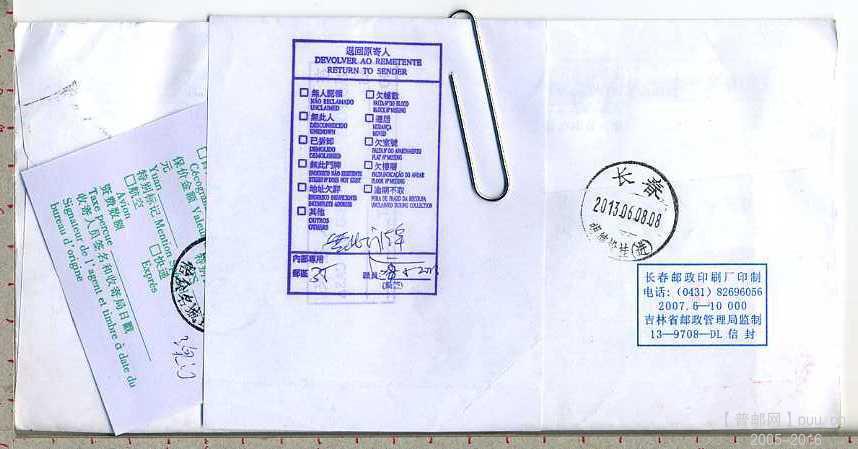 退回原寄人
DEVOLVER AO REMETENTE
RETURN TO SENDER
無人認領
NÃO RECLAMADO
UNCLAIMED
無此人
DESCONHECIDO
UNKNOWN
已拆卸
DEMOLIDO
DEMOLISHED
無此門牌
ENDEREÇO NÃO EXISTENTE
STREET Nº DOES NOT EXIST
地址欠詳
ENDEREÇO INSUFICIENTE
INCOMPLETE ADDRESS
其他
OUTROS
OTHERS
欠樓數
FALTA Nº DO BLOCO
BLOCK Nº MISSING
遷居
MUDANÇA
MOVED
欠室號
FALTA Nº DO APARTAMENTO
FLAT Nº MISSING
欠樓層
FALTA INDICAÇÃO DO ANDAR
FLOOR Nº MISSING
逾期不取
FORA DE PRAZO DA RECOLHA
UNCLAIMED DURING COLLECTION
內部專用
郵區 35
職員
保价金额 Valeur
元
Yuan
特别标记 Mention
航空
Avion
快递
Exprès
资费数额
Taxe perçue
收寄人员签名和收寄局日戳
Signature de l'agent et timbre à date du
bureau d'origine
长春
2013.06.08.08
长春邮政印刷厂印制
电话:(0431) 82696056
2007.6—10 000
吉林省邮政管理局监制
13—9708—DL 信封
【普邮网】puu.cc
2005–2016